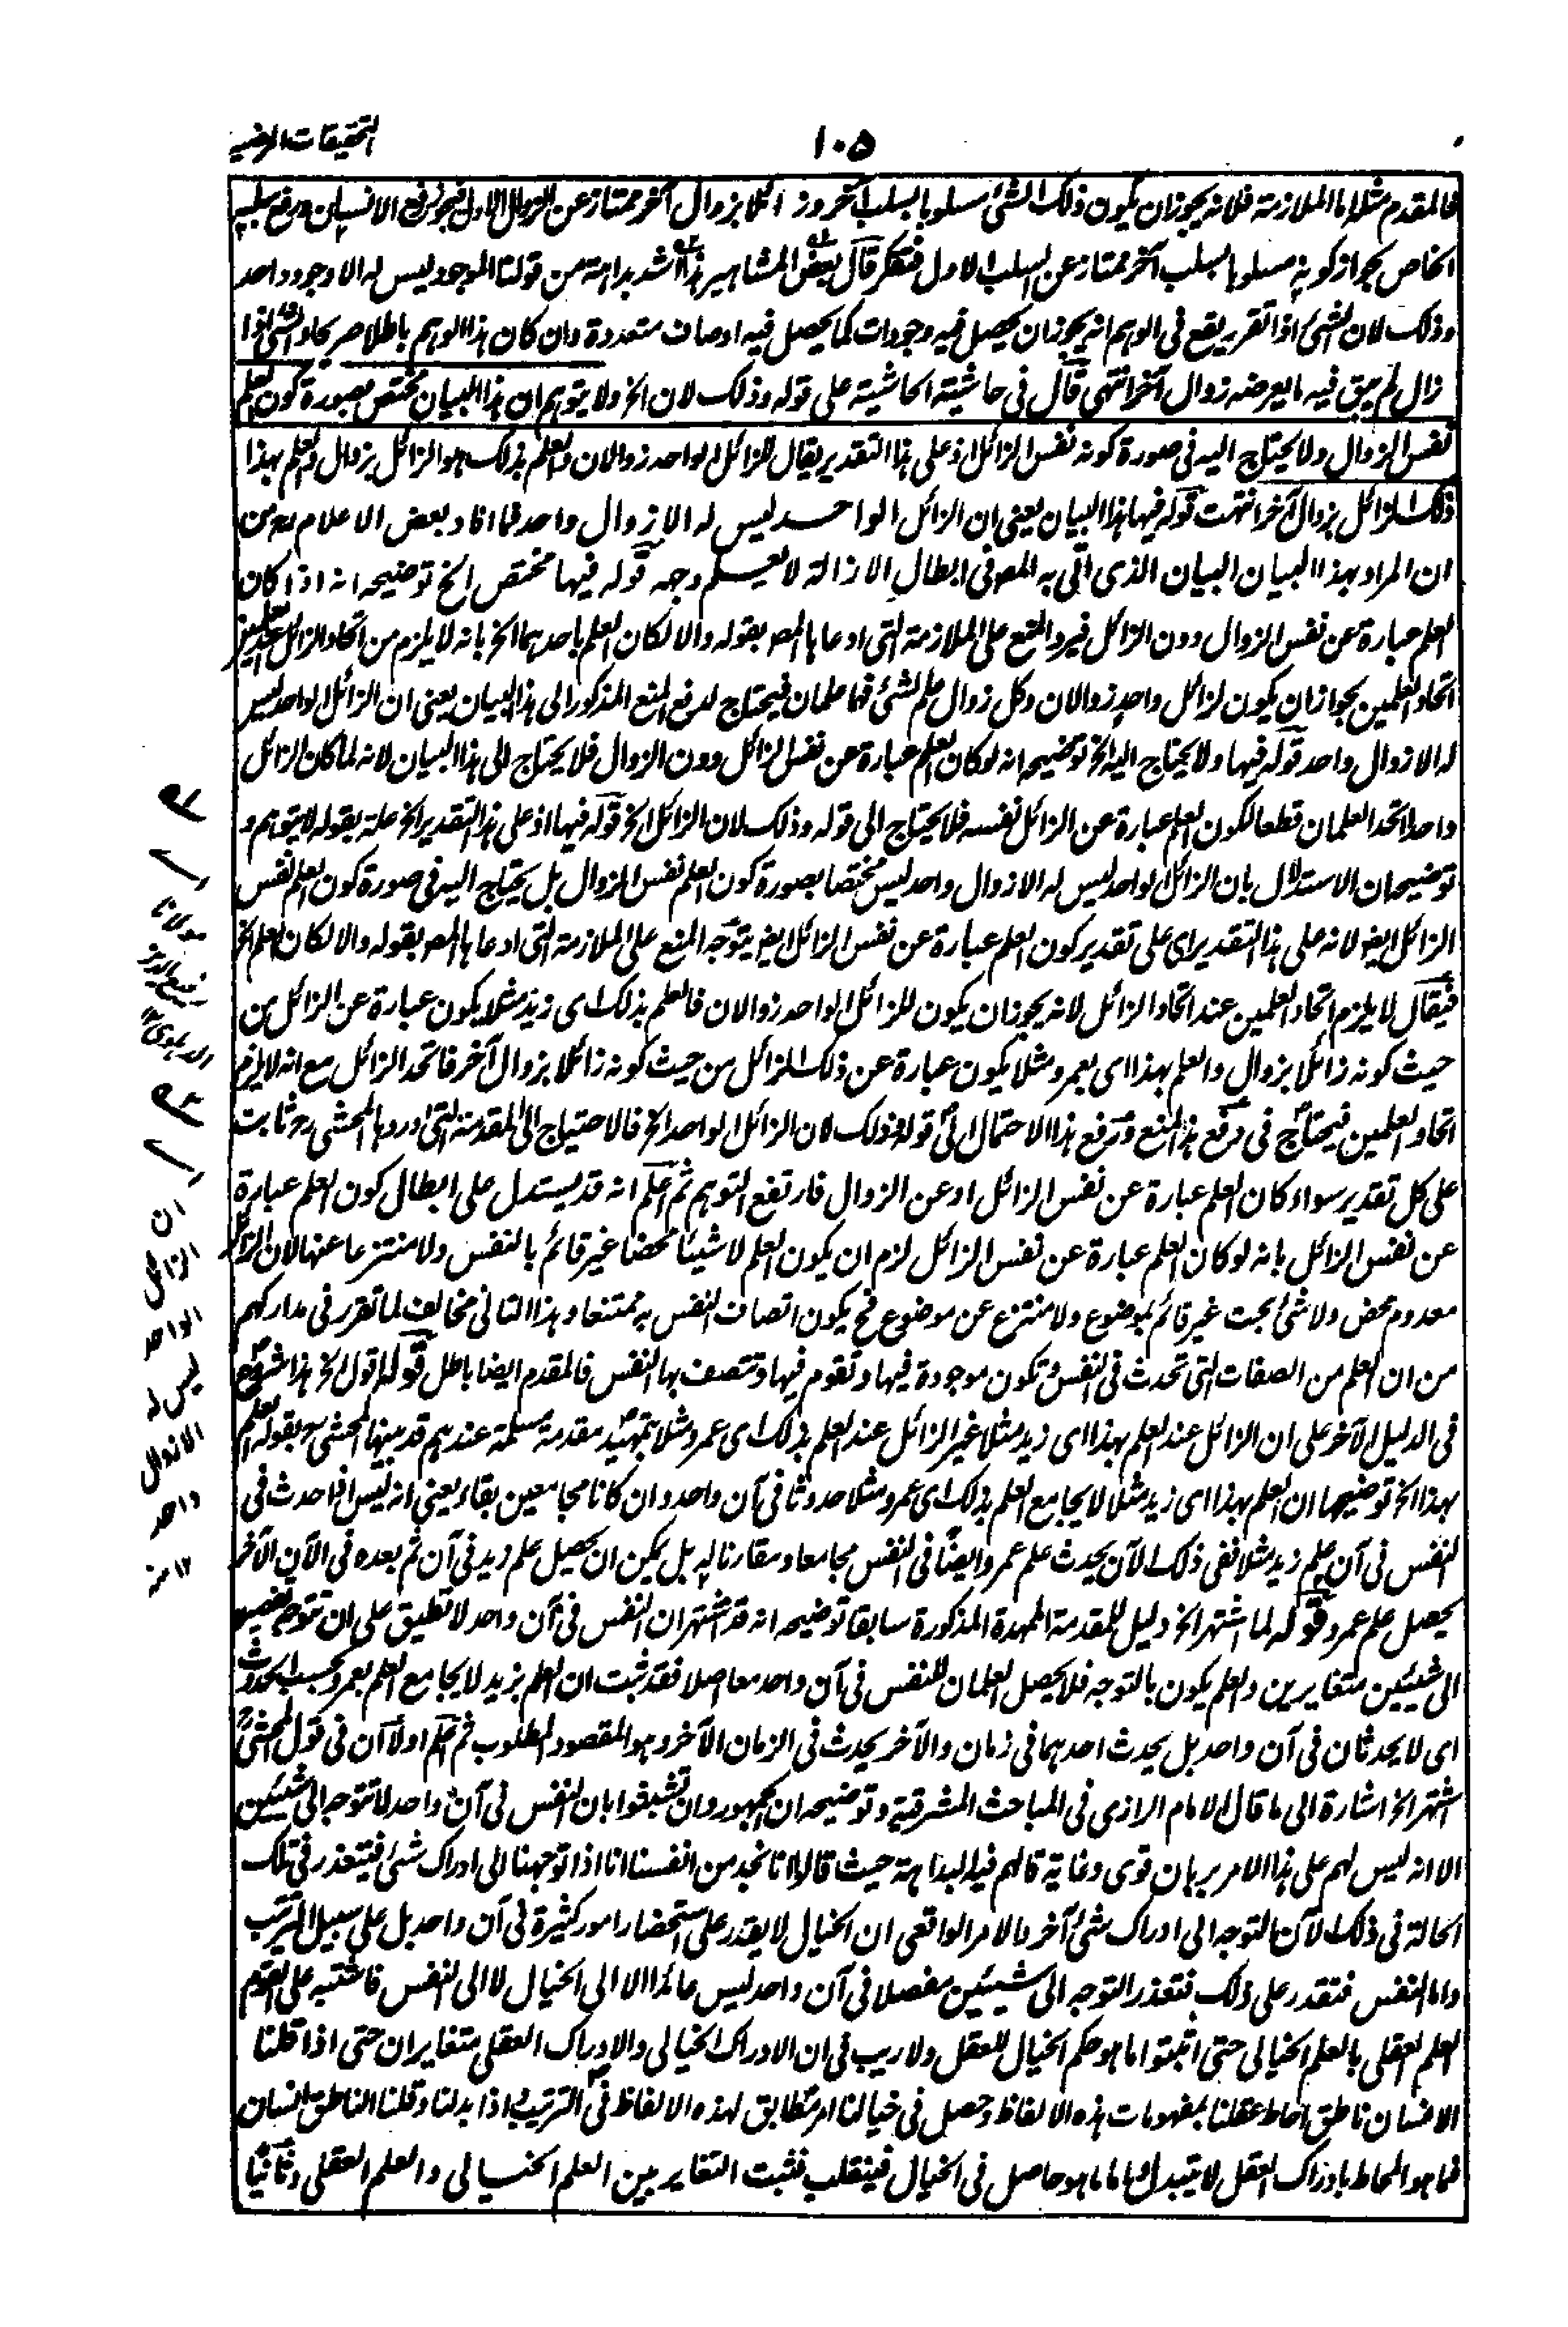 التحقيقات المرضية
١٠٥
فالمقدم مثله اما الملازمة فلانه يجوز ان يكون ذلك الشئ مسلوبا بسلب آخر وزائلا بزوال آخر ممتاز عن الزوال الاول فيجوز رفع الانسان ورفع سلبه
الخاص بجواز كونه مسلوبا بسلب آخر ممتاز عن السلب الاول فتفكر قال بعض المشاهير هذا اشد بداهة من قولنا الموجود ليس له الا وجود واحد
وذلك لان الشئ اذا تقرر يقع فى الوهم انه يجوز ان يحصل فيه وجودات كما يحصل فيه اوصاف متعددة وان كان هذا الوهم باطلا صريحا والشئ اذا
زال لم يبق فيه ما يعرضه زوال آخر انتهى قال فى حاشية الحاشية على قوله وذلك لان الخ ولا يتوهم ان هذا البيان مختص بصورة كون العلم
نفس الزوال ولا يحتاج اليه فى صورة كونه نفس الزائل اذ على هذا التقدير يقال للزائل الواحد زوالان والعلم بذلك هو الزائل بزوال والعلم بهذا
ذلك الزائل بزوال آخر انتهت قوله فيها هذا البيان يعنى ان الزائل الواحد ليس له الا زوال واحد فما افاد بعض الاعلام رح من
ان المراد بهذا البيان البيان الذى اتى به المص فى ابطال الازالة لا يعلم وجهه قوله فيها مختص الخ توضيحه انه اذا كان
العلم عبارة عن نفس الزوال دون الزائل فيرد المنع على الملازمة التى ادعاها المص بقوله والا لكان العلم باحدهما الخ بانه لا يلزم من اتحاد الزائل عند العلمين
اتحاد العلمين بجواز ان يكون لزائل واحد زوالان وكل زوال علم لشئ فهما علمان فيحتاج لدفع المنع المذكور الى هذا البيان يعنى ان الزائل الواحد ليس
له الا زوال واحد قوله فيها ولا يحتاج اليه الخ توضيحه انه لو كان العلم عبارة عن نفس الزائل دون الزوال فلا يحتاج الى هذا البيان لانه لما كان الزائل
واحدا اتحد العلمان قطعا لكون العلم عبارة عن الزائل نفسه فلا يحتاج الى قوله وذلك لان الزائل الخ قوله فيها اذ على هذا التقدير الخ علة بقوله لا يتوهم و
توضيحه ان الاستدلال بان الزائل الواحد ليس له الا زوال واحد ليس مختصا بصورة كون العلم نفس الزوال بل يحتاج اليه فى صورة كون العلم نفس
الزائل ايض لانه على هذا التقدير اى على تقدير كون العلم عبارة عن نفس الزائل ايض يتوجه المنع على الملازمة التى ادعاها المص بقوله والا لكان العلم الخ
فيقال لا يلزم اتحاد العلمين عند اتحاد الزائل لانه يجوز ان يكون للزائل الواحد زوالان فالعلم بذلك اى زيد مثلا يكون عبارة عن الزائل من
حيث كونه زائلا بزوال والعلم بهذا اى بعمرو مثلا يكون عبارة عن ذلك الزائل من حيث كونه زائلا بزوال آخر فاتحد الزائل مع انه لا يلزم
اتحاد العلمين فيحتاج فى دفع هذا المنع ورفع هذا الاحتمال الى قوله وذلك لان الزائل الواحد الخ فالاحتياج الى المقدمة التى اوردها المحشى رح ثابت
على كل تقدير سواء كان العلم عبارة عن نفس الزائل او عن الزوال فارتفع التوهم ثم اعلم انه قد يستدل على ابطال كون العلم عبارة
عن نفس الزائل بانه لو كان العلم عبارة عن نفس الزائل لزم ان يكون العلم لا شيئا محضا غير قائم بالنفس ولا منتزعا عنها لان الزائل
معدوم محض ولا شئ بحت غير قائم بموضوع ولا منتزع عن موضوع فح يكون اتصاف النفس به ممتنعا وهذا التالى مخالف لما تقرر فى مداركهم
من ان العلم من الصفات التى تحدث فى النفس وتكون موجودة فيها وتقوم فيها وتتصف بها النفس فالمقدم ايضا باطل قوله اقول الخ هذا شروع
فى الدليل الآخر على ان الزائل عند العلم بهذا اى زيد مثلا غير الزائل عند العلم بذلك اى عمرو مثلا بتمهيد مقدمة مسلمة عندهم قد مينها المحشى رح بقوله العلم
بهذا الخ توضيحها ان العلم بهذا اى زيد مثلا لا يجامع العلم بذلك اى عمرو مثلا حدوثا فى آن واحد وان كانا مجامعين بقاء يعنى انه ليس اذا حدث فى
النفس فى آن علم زيد مثلا ففى ذلك الآن يحدث علم عمرو ايضا فى النفس مجامعا ومقارنا له بل يمكن ان يحصل علم زيد فى آن ثم بعده فى الآن الآخر
يحصل علم عمرو قوله لما اشتهر الخ دليل للمقدمة الممهدة المذكورة سابقا توضيحه انه قد اشتهر ان النفس فى آن واحد لا تطيق على ان تتوجه قصدا
الى شيئين متغايرين والعلم يكون بالتوجه فلا يحصل العلمان للنفس فى آن واحد معا اصلا فقد ثبت ان العلم بزيد لا يجامع العلم بعمرو بحسب الحدوث
اى لا يحدثان فى آن واحد بل يحدث احدهما فى زمان والآخر يحدث فى الزمان الآخر وهو المقصود المطلوب ثم اعلم اولا ان فى قول المحشى
اشتهر الخ اشارة الى ما قال الامام الرازى فى المباحث المشرقية وتوضيحه ان الجمهور وان تشبثوا بان النفس فى آن واحد لا تتوجه الى شيئين
الا انه ليس لهم على هذا الامر برهان قوى وغاية قالهم فيه البداهة حيث قالوا انا نجد من انفسنا انا اذا توجهنا الى ادراك شئ فيتعذر فى تلك
الحالة فى ذلك الآن التوجه الى ادراك شئ آخر والامر الواقعى ان الخيال لا يقدر على استحضار امور كثيرة فى آن واحد بل على سبيل الترتب
واما النفس فتقدر على ذلك فتعذر التوجه الى شيئين مفصلا فى آن واحد ليس عائدا الا الى الخيال لا الى النفس فاشتبه على القوم
العلم العقلى بالعلم الخيالى حتى اثبتوا ما هو حكم الخيال للعقل ولا ريب فى ان الادراك الخيالى والادراك العقلى متغايران حتى اذا قلنا
الانسان ناطق احاط عقلنا بمفهومات هذه الالفاظ وحصل فى خيالنا امر مطابق لهذه الالفاظ فى الترتيب واذا بدلنا وقلنا الناطق انسان
فما هو المحاط بادراك العقل لا يتبدل واما ما هو حاصل فى الخيال فينقلب فثبت التغاير بين العلم الخيالى والعلم العقلى وثانيا
مولانا
رفيع الدين
الدهلوى
ان
الزائل
الواحد
ليس له
الا زوال
واحد
١٢ منه